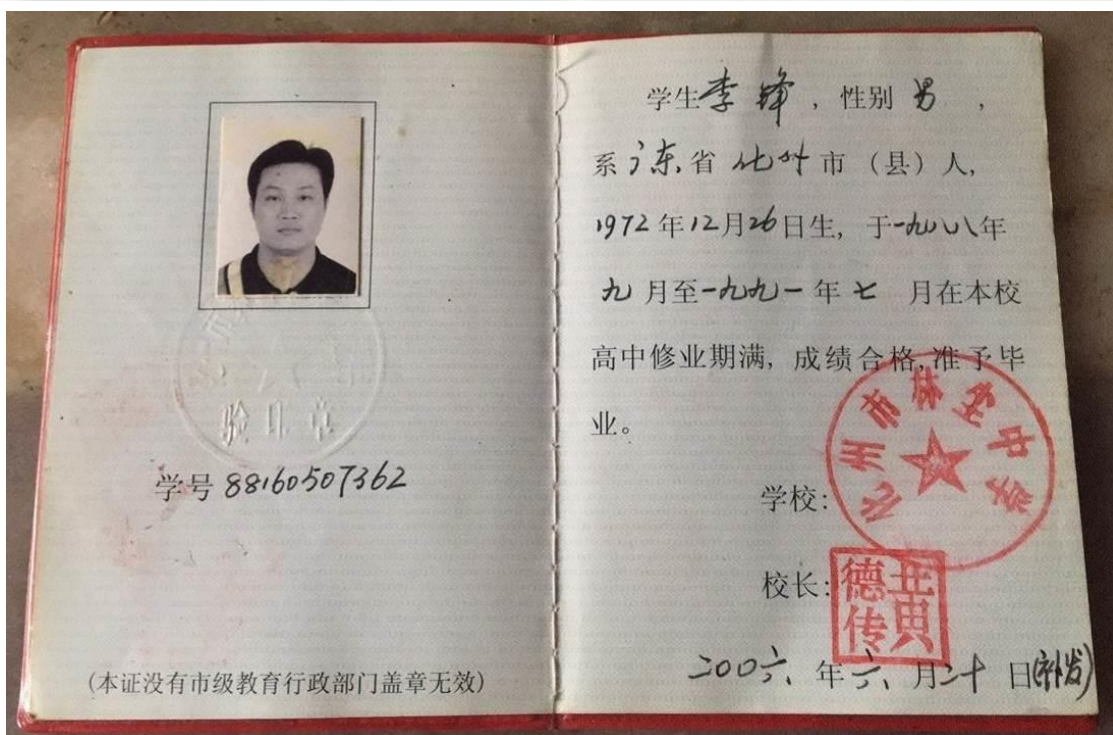 验印章
学号 88160507362
(本证没有市级教育行政部门盖章无效)
学生李锋，性别男，
系广东省化州市（县）人，
1972年12月26日生，于一九八八年
九月至一九九一年七月在本校
高中修业期满，成绩合格，准予毕
业。
学校：
化州市林尘中学
校长：
德传
黄
二〇〇六年六月二十日(补发)